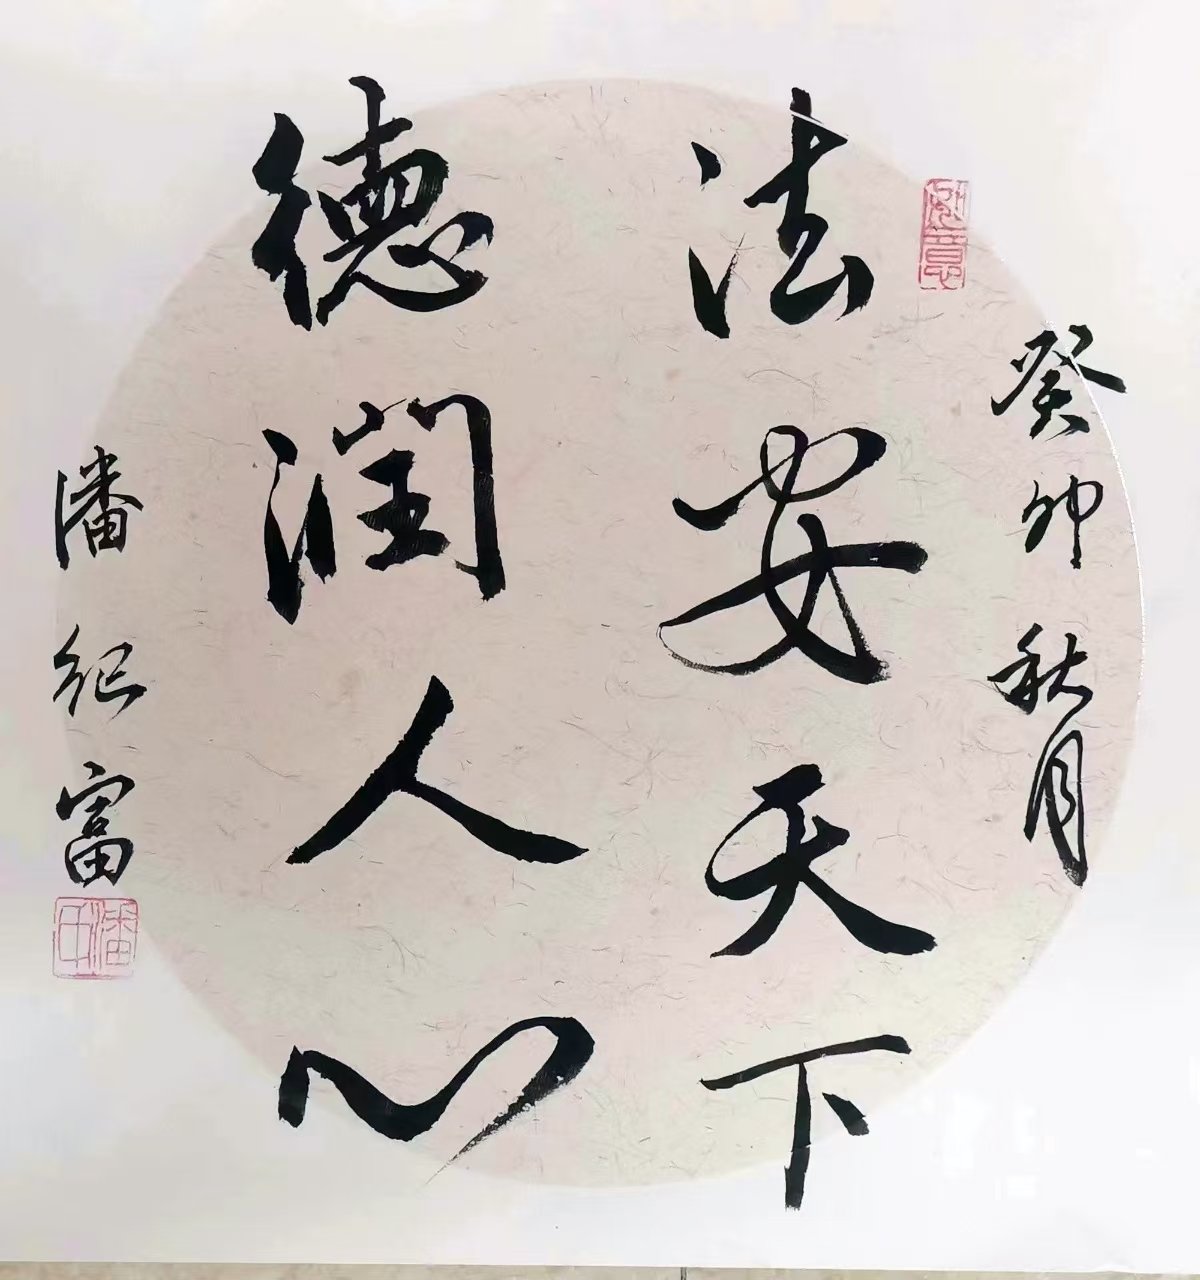 癸卯秋月
法安天下
德润人心
潘纪富